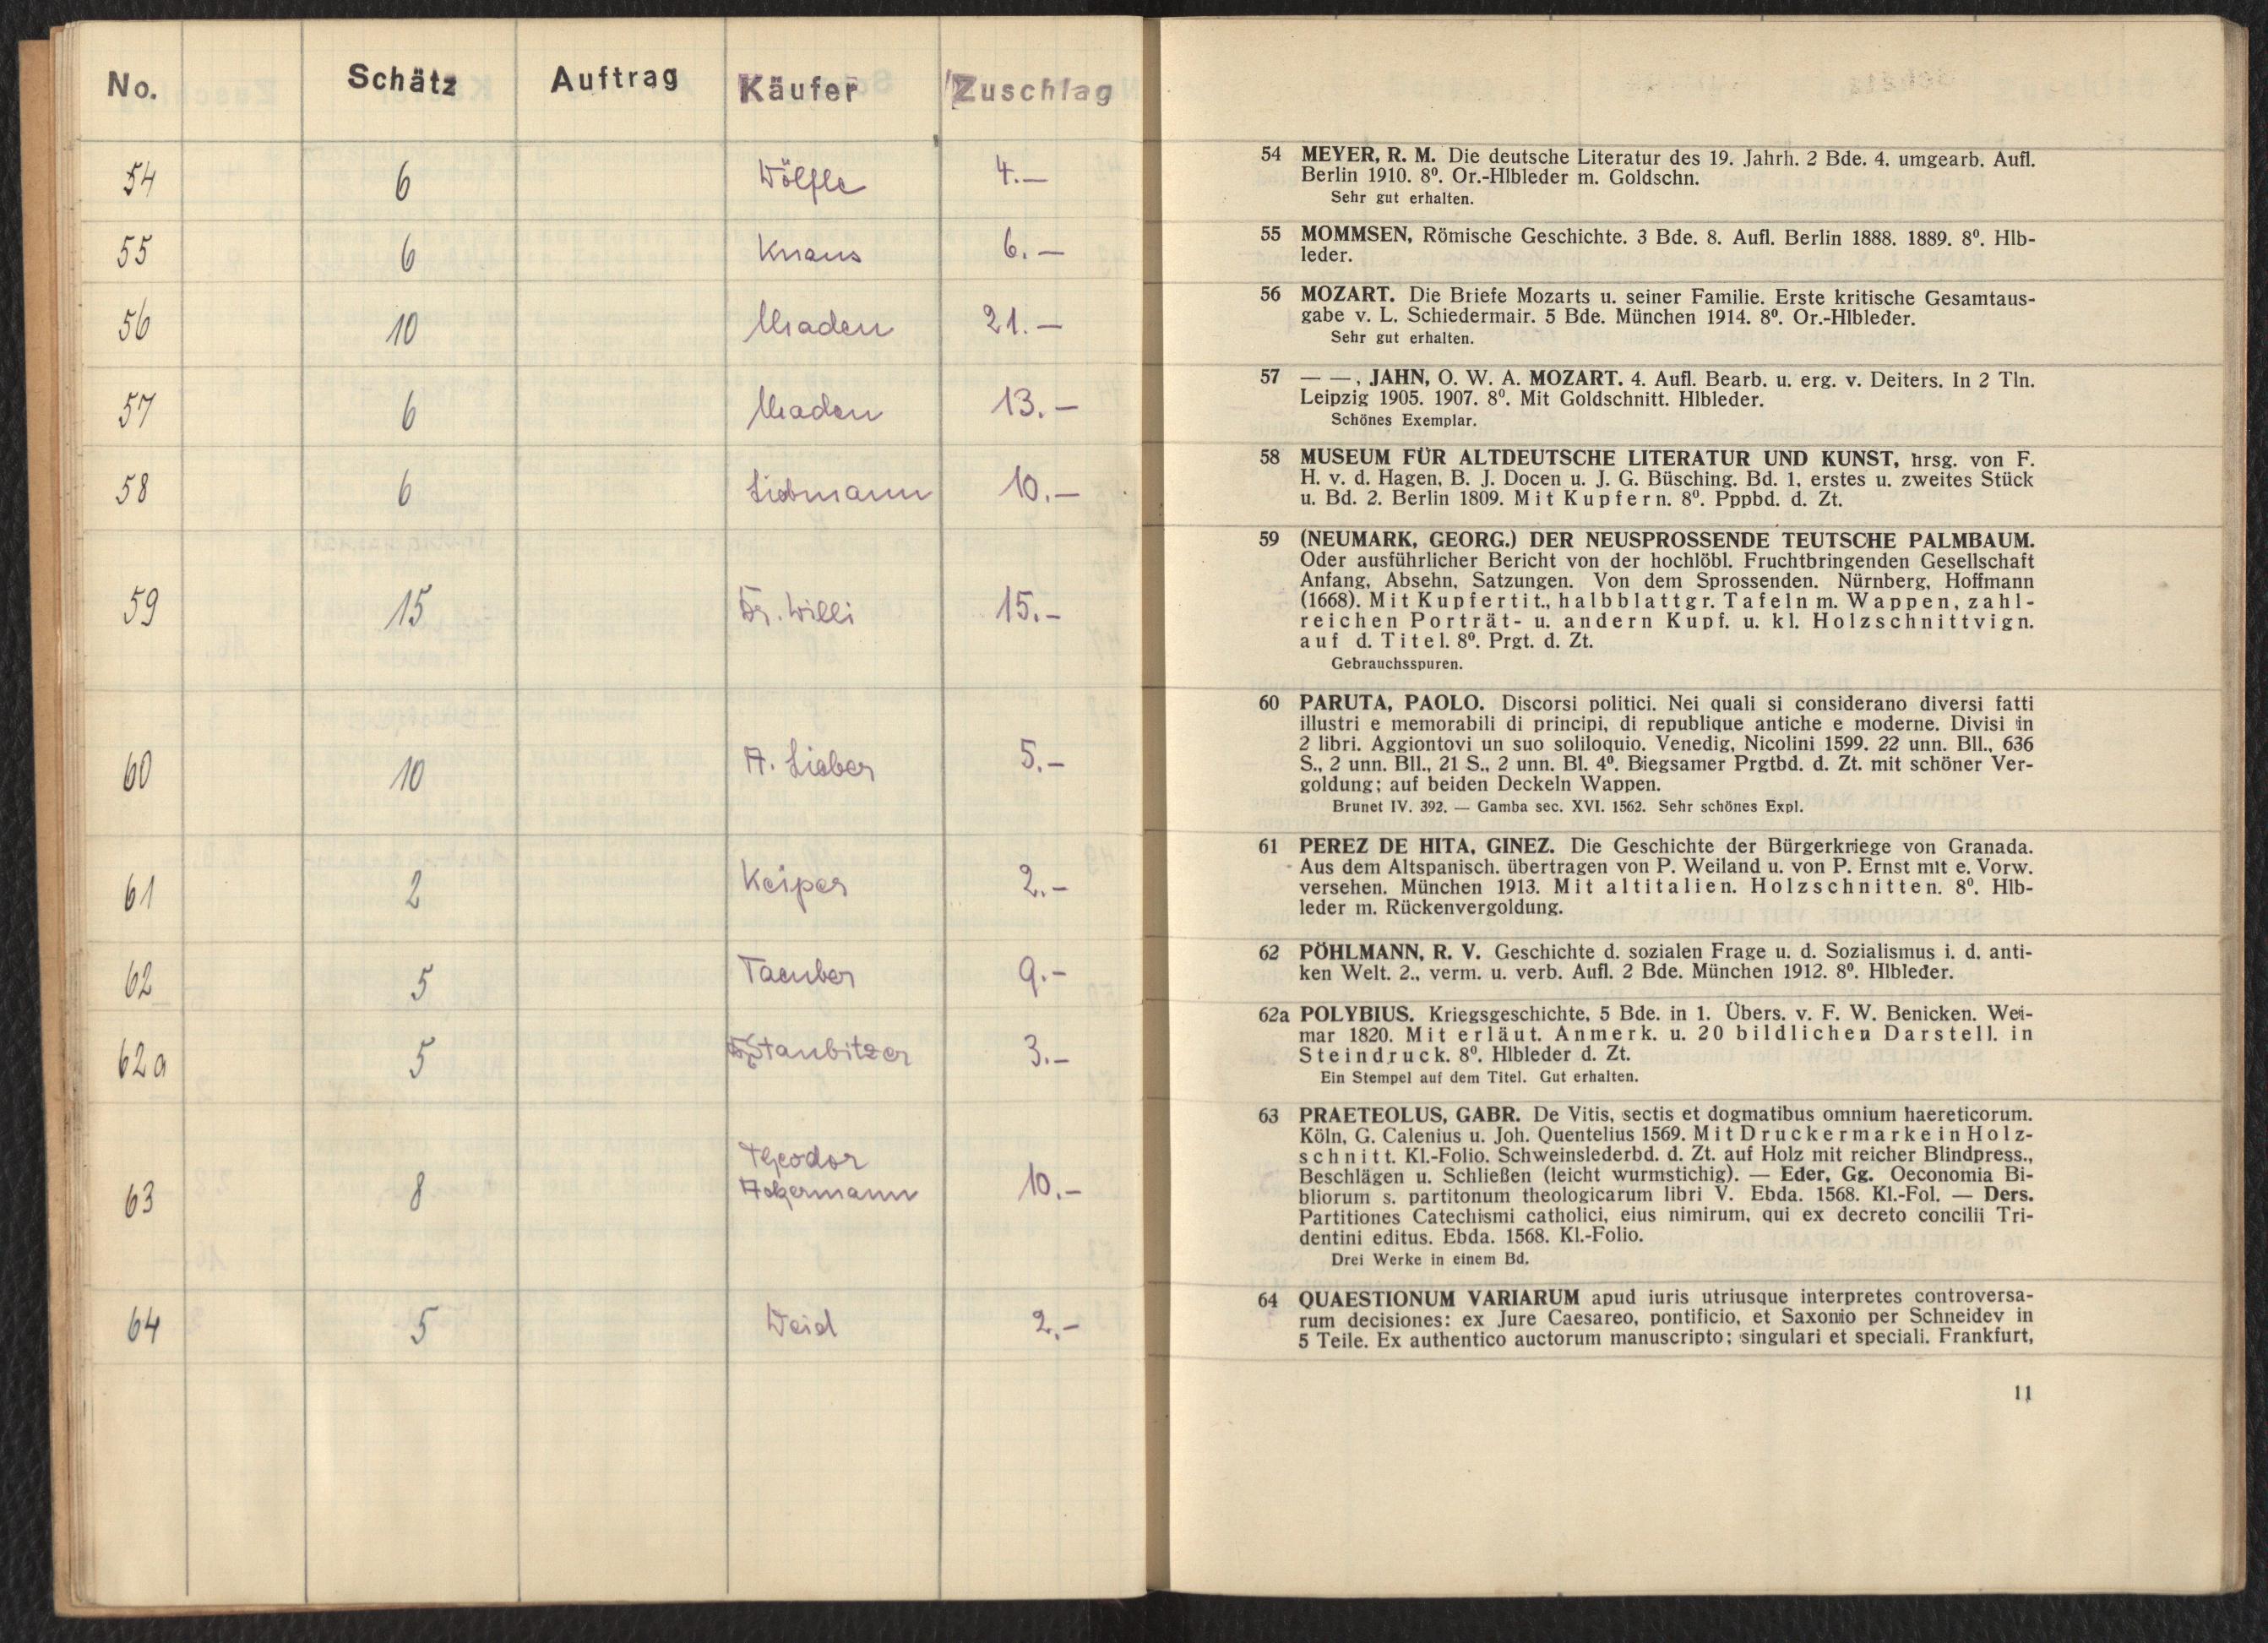 No. Schätz Auftrag Käufer Zuschlag
54 6 Wölfle 4.—
55 6 Knaus 6.—
56 10 Maden 21.—
57 6 Maden 13.—
58 6 Liebmann 10.—
59 15 Dr. Willi 15.—
60 10 A. Lieber 5.—
61 2 Keiper 2.—
62 5 Taeuber 9.—
62a 5 Staubitzer 3.—
63 8 Theodor Ackermann 10.—
64 5 Weid 2.—
54 MEYER, R. M. Die deutsche Literatur des 19. Jahrh. 2 Bde. 4. umgearb. Aufl.
Berlin 1910. 8⁰. Or.-Hlbleder m. Goldschn.
Sehr gut erhalten.
55 MOMMSEN, Römische Geschichte. 3 Bde. 8. Aufl. Berlin 1888. 1889. 8⁰. Hlb-
leder.
56 MOZART. Die Briefe Mozarts u. seiner Familie. Erste kritische Gesamtaus-
gabe v. L. Schiedermair. 5 Bde. München 1914. 8⁰. Or.-Hlbleder.
Sehr gut erhalten.
57 — —, JAHN, O. W. A. MOZART. 4. Aufl. Bearb. u. erg. v. Deiters. In 2 Tln.
Leipzig 1905. 1907. 8⁰. Mit Goldschnitt. Hlbleder.
Schönes Exemplar.
58 MUSEUM FÜR ALTDEUTSCHE LITERATUR UND KUNST, hrsg. von F.
H. v. d. Hagen, B. J. Docen u. J. G. Büsching. Bd. 1, erstes u. zweites Stück
u. Bd. 2. Berlin 1809. Mit Kupfern. 8⁰. Pppbd. d. Zt.
59 (NEUMARK, GEORG.) DER NEUSPROSSENDE TEUTSCHE PALMBAUM.
Oder ausführlicher Bericht von der hochlöbl. Fruchtbringenden Gesellschaft
Anfang, Absehn, Satzungen. Von dem Sprossenden. Nürnberg, Hoffmann
(1668). Mit Kupfertit., halbblattgr. Tafeln m. Wappen, zahl-
reichen Porträt- u. andern Kupf. u. kl. Holzschnittvign.
auf d. Titel. 8⁰. Prgt. d. Zt.
Gebrauchsspuren.
60 PARUTA, PAOLO. Discorsi politici. Nei quali si considerano diversi fatti
illustri e memorabili di principi, di republique antiche e moderne. Divisi in
2 libri. Aggiontovi un suo soliloquio. Venedig, Nicolini 1599. 22 unn. Bll., 636
S., 2 unn. Bll., 21 S., 2 unn. Bl. 4⁰. Biegsamer Prgtbd. d. Zt. mit schöner Ver-
goldung; auf beiden Deckeln Wappen.
Brunet IV. 392. — Gamba sec. XVI. 1562. Sehr schönes Expl.
61 PEREZ DE HITA, GINEZ. Die Geschichte der Bürgerkriege von Granada.
Aus dem Altspanisch. übertragen von P. Weiland u. von P. Ernst mit e. Vorw.
versehen. München 1913. Mit altitalien. Holzschnitten. 8⁰. Hlb-
leder m. Rückenvergoldung.
62 PÖHLMANN, R. V. Geschichte d. sozialen Frage u. d. Sozialismus i. d. anti-
ken Welt. 2., verm. u. verb. Aufl. 2 Bde. München 1912. 8⁰. Hlbleder.
62a POLYBIUS. Kriegsgeschichte, 5 Bde. in 1. Übers. v. F. W. Benicken. Wei-
mar 1820. Mit erläut. Anmerk. u. 20 bildlichen Darstell. in
Steindruck. 8⁰. Hlbleder d. Zt.
Ein Stempel auf dem Titel. Gut erhalten.
63 PRAETEOLUS, GABR. De Vitis, sectis et dogmatibus omnium haereticorum.
Köln, G. Calenius u. Joh. Quentelius 1569. Mit Druckermarke in Holz-
schnitt. Kl.-Folio. Schweinslederbd. d. Zt. auf Holz mit reicher Blindpress.,
Beschlägen u. Schließen (leicht wurmstichig). — Eder, Gg. Oeconomia Bi-
bliorum s. partitonum theologicarum libri V. Ebda. 1568. Kl.-Fol. — Ders.
Partitiones Catechismi catholici, eius nimirum, qui ex decreto concilii Tri-
dentini editus. Ebda. 1568. Kl.-Folio.
Drei Werke in einem Bd.
64 QUAESTIONUM VARIARUM apud iuris utriusque interpretes controversa-
rum decisiones: ex Jure Caesareo, pontificio, et Saxonio per Schneidev in
5 Teile. Ex authentico auctorum manuscripto; singulari et speciali. Frankfurt,
11